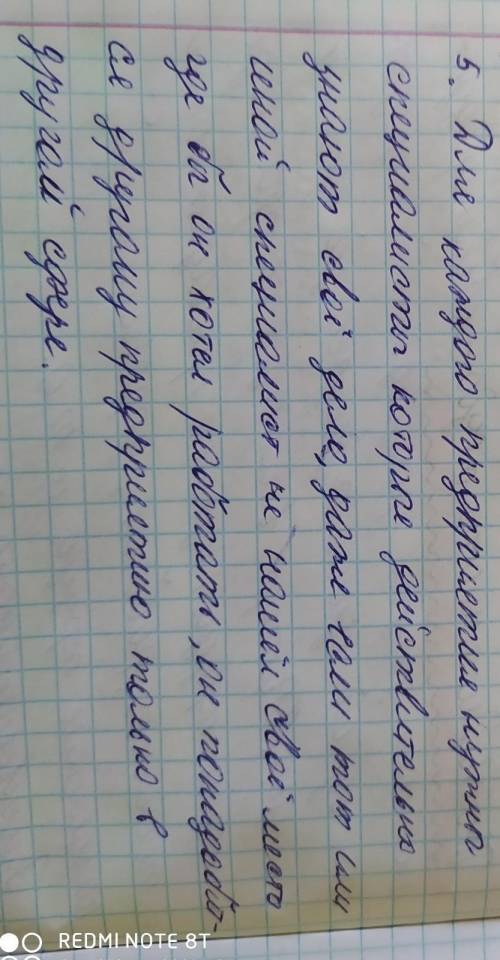 5. Для каждого предприетие нужны
специалисты которые действительно
знают своё дело, даже если тот или
иной специалист не нашёл своё место
где бы он хотел работать, он понадобит-
ся другому предприетию только в
другой сфере.
REDMI NOTE 8T